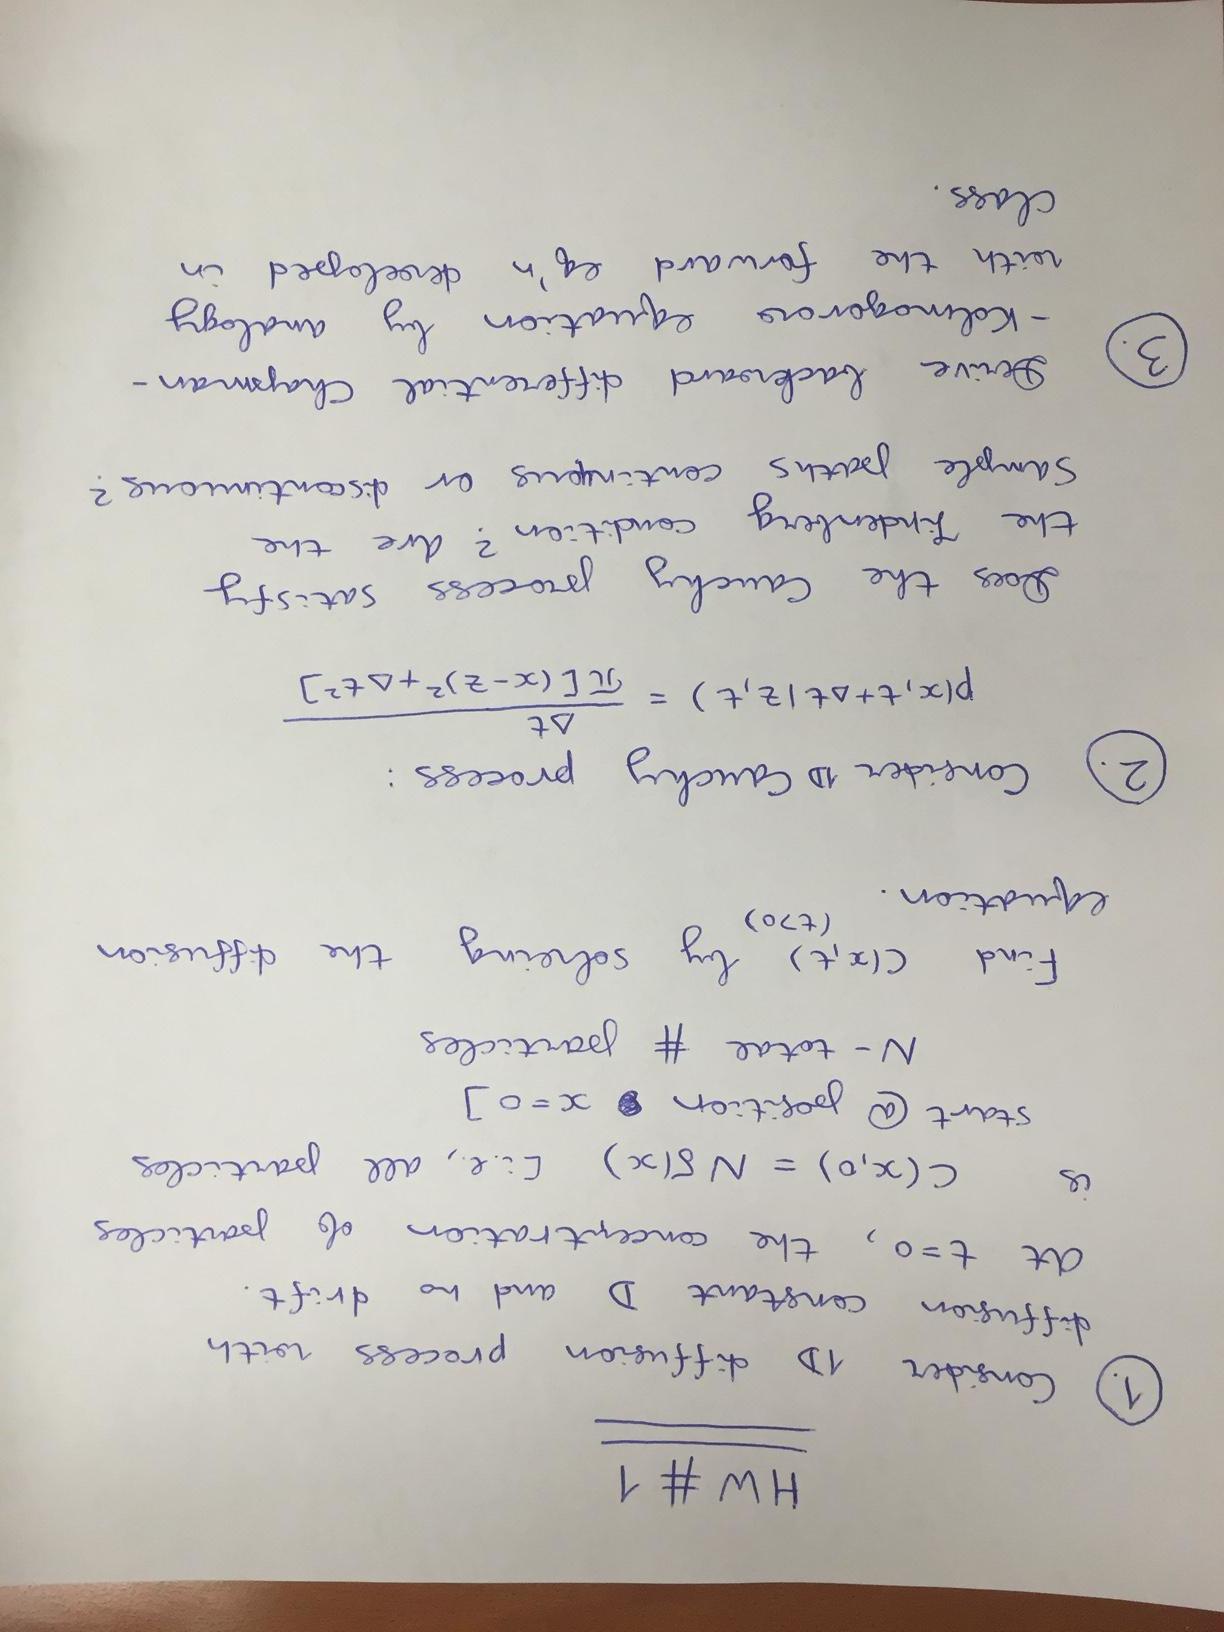 HW # 1
1. Consider 1D diffusion process with
diffusion constant D and no drift.
At t=0, the concentration of particles
is C(x,0) = N δ(x) [i.e., all particles
start @ position x=0]
N - total # particles
Find C(x,t) by solving the diffusion
(t>0)
equation.
2. Consider 1D Cauchy process:
p(x,t+Δt|z,t) = Δt / π[(x-z)²+Δt²]
Does the Cauchy process satisfy
the Lindenberg condition? Are the
sample paths continuous or discontinuous?
3. Derive backward differential Chapman-
-Kolmogorov equation by analogy
with the forward eq'n developed in
class.